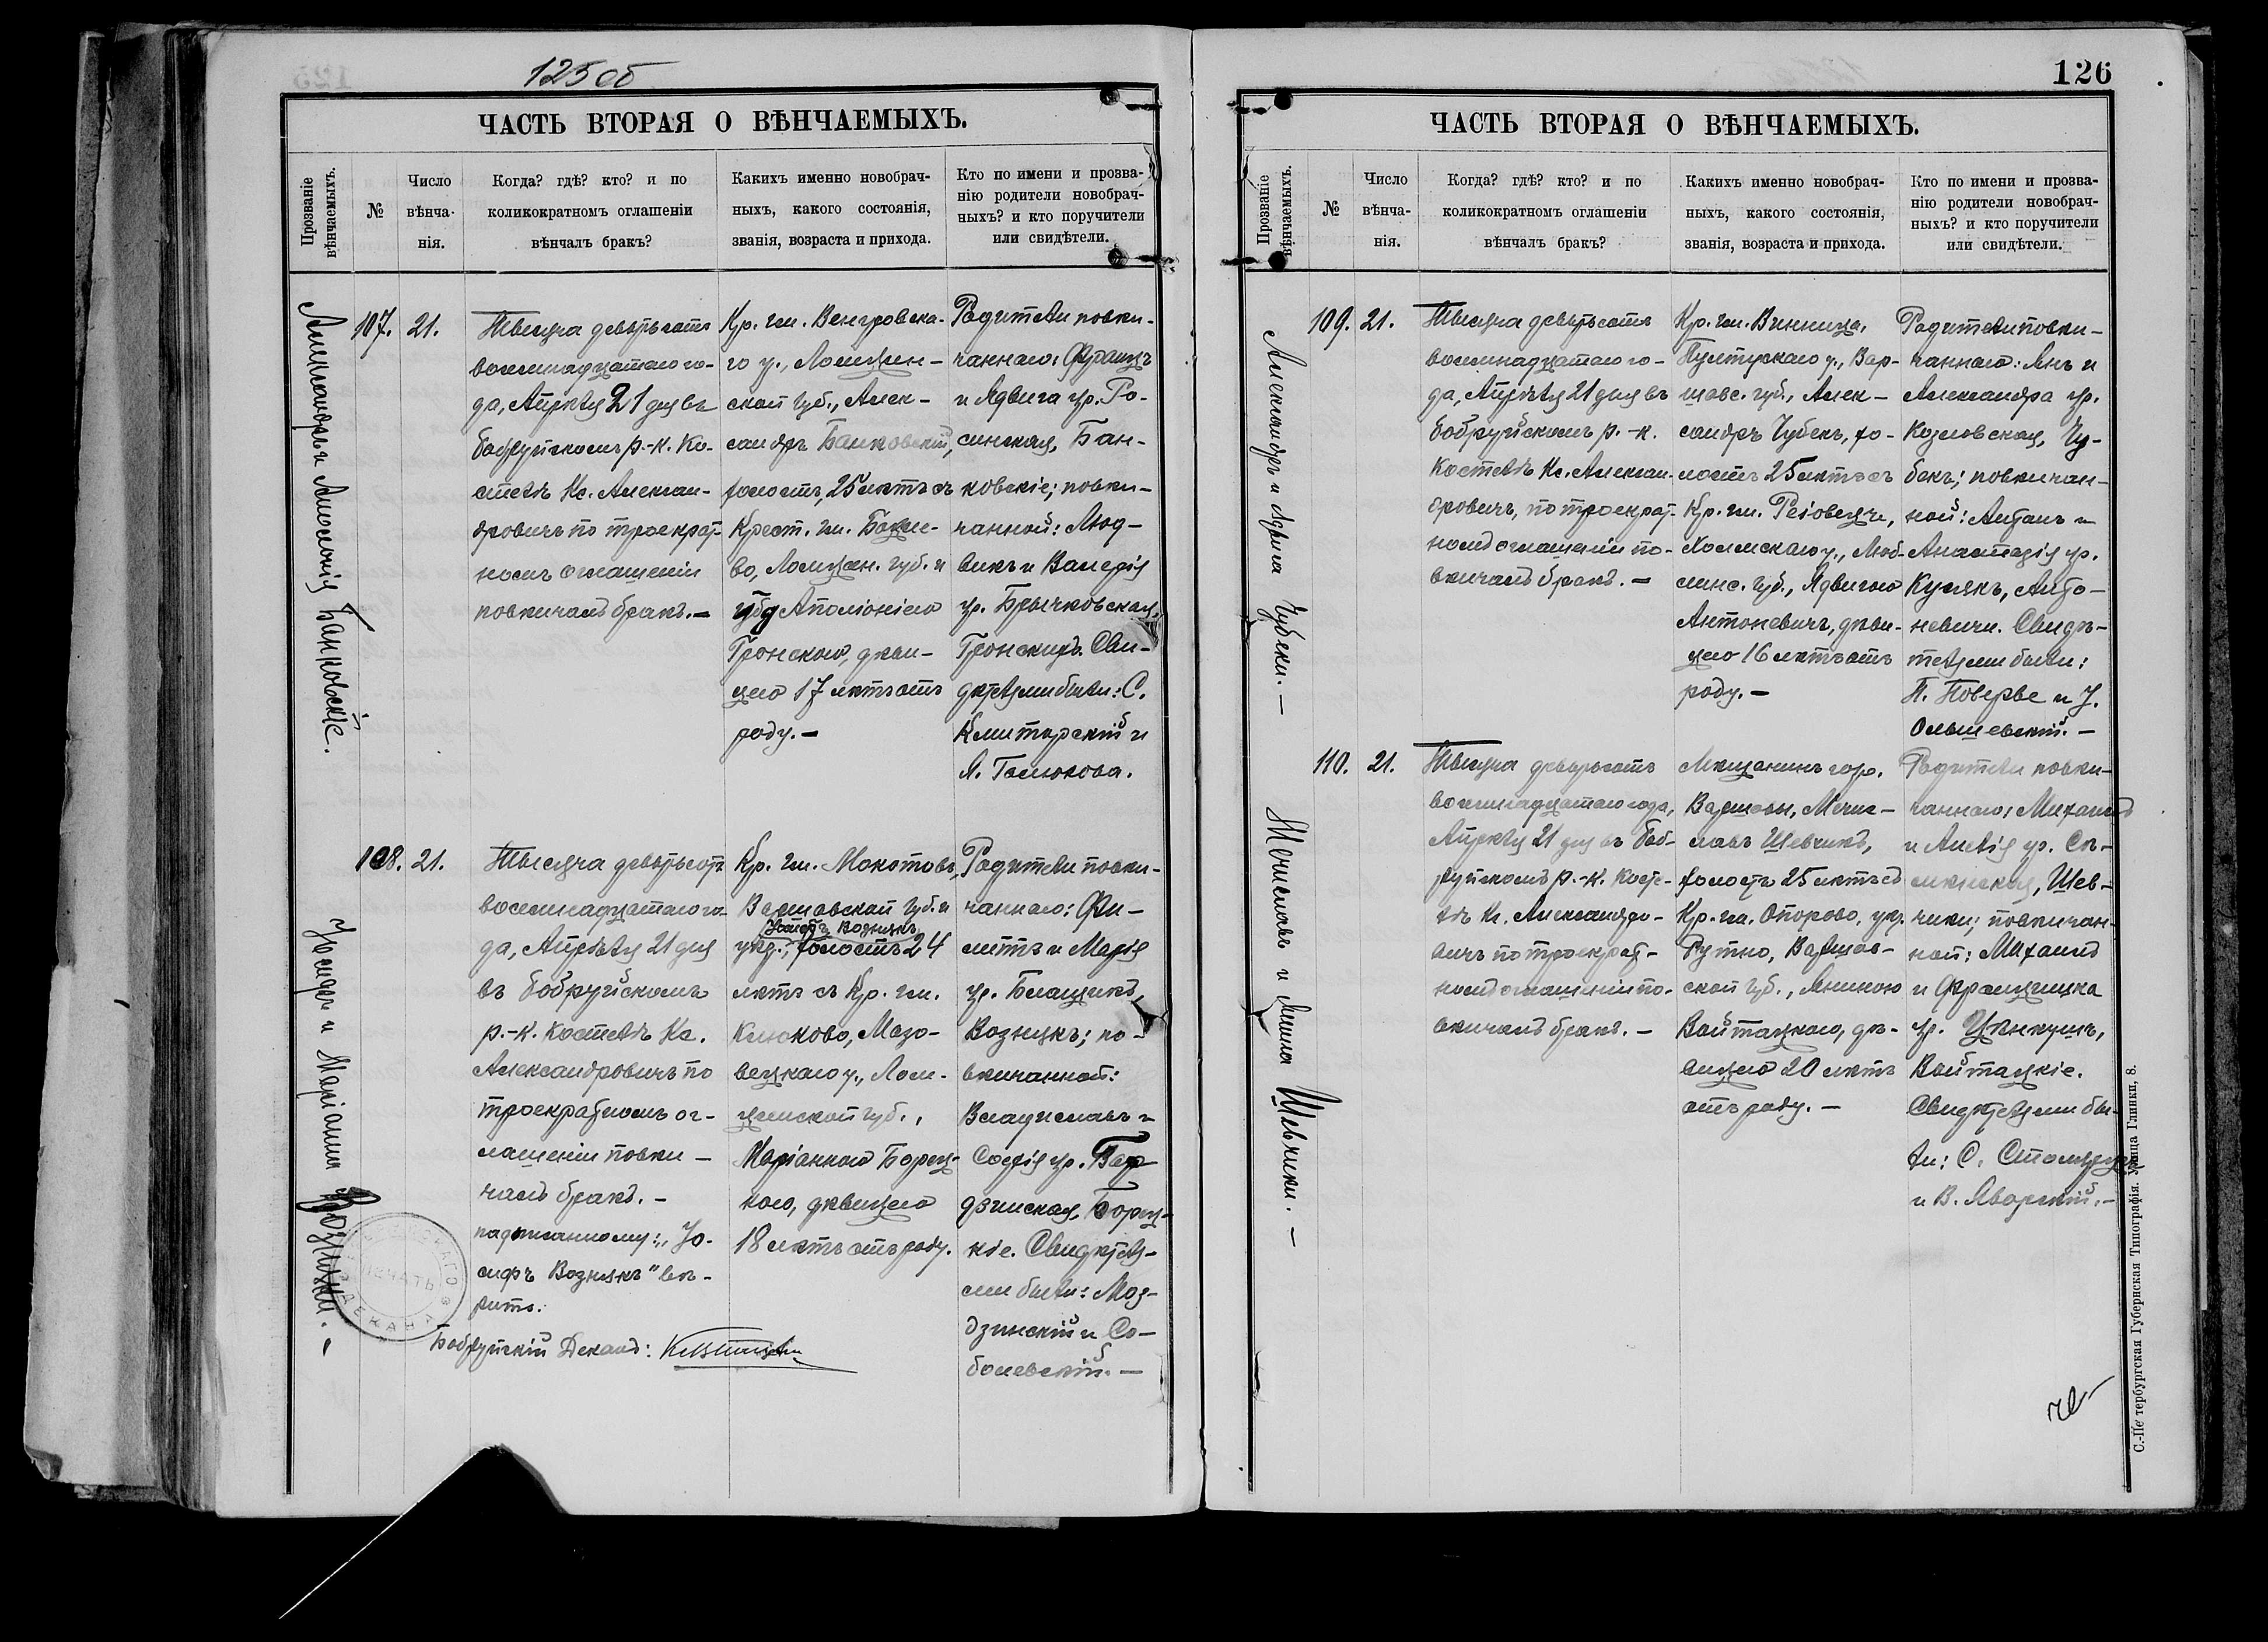 125об
ЧАСТЬ ВТОРАЯ О ВѢНЧАЕМЫХЪ.
Прозваніе вѣнчаемыхъ.
№
Число вѣнча- нія.
Когда? гдѣ? кто? и по
коликократномъ оглашеніи
вѣнчалъ бракъ?
Какихъ именно новобрач-
ныхъ, какого состоянія,
званія, возраста и прихода.
Кто по имени и прозва-
нію родители новобрач-
ныхъ? и кто поручители
или свидѣтели.
Александръ и Аполонія Банковскіе.
107.
21.
Тысяча девятьсотъ
восемнадцатаго го-
да, Апрѣля 21 дня въ
бобруйскомъ р.-к. Ко-
стелѣ Кс. Алексан-
дровичъ по троекрат-
номъ оглашеніи
повѣнчалъ бракъ.-
Кр. гм. Венгровска-
го у., Ломжин-
ской губ., Алек-
сандръ Банковскій,
холостъ, 25 лѣтъ съ
Крест. гм.
во, Ломжин. губ. и
Аполоніею
Гронскою, дѣви-
цею 17 лѣтъ отъ
роду.-
Родители повѣн-
чаннаго: Францъ
и Ядвига ур. Ро-
синская, Бан-
ковскіе; повѣн-
чанной: Люд-
викъ и Валерія
ур. Брычковская,
Гронскихъ. Сви-
дѣтелями были: С.
Клиторскій и
Я. Голюкова.
Іосифъ и Маріанна Возняки.-
108.
21.
Тысяча девятьсотъ
восемнадцатаго го-
да, Апрѣля 21 дня
въ бобруйскомъ
р.-к. костелѣ Кс.
Александровичъ по
троекратномъ ог-
лашеніи повѣн-
чалъ бракъ.-
надписанному: "Іо-
сифъ Вознякъ" вѣ-
рить.
Бобруйскій Деканъ:
Кр. гм. Мокотовъ,
Варшавской губ. и
Іосифъ Вознякъ
уѣз., холостъ 24
лѣтъ съ Кр. гм.
Клюково, Мазо-
вецкаго у., Лом-
жинской губ.,
Маріанною Бориц-
кою, дѣвицею
18 лѣтъ отъ роду.
Родители повѣн-
чаннаго: Фи-
липъ и Марія
ур. Блащикъ,
Вознякъ; по-
вѣнчанной:
Владиславъ и
Софія ур. Бар
дзинская, Бориц-
кіе. Свидѣтел-
ми были: Моз-
дзинскій и Со-
болевскій.-
126
ЧАСТЬ ВТОРАЯ О ВѢНЧАЕМЫХЪ.
Прозваніе вѣнчаемыхъ.
№
Число вѣнча- нія.
Когда? гдѣ? кто? и по
коликократномъ оглашеніи
вѣнчалъ бракъ?
Какихъ именно новобрач-
ныхъ, какого состоянія,
званія, возраста и прихода.
Кто по имени и прозва-
нію родители новобрач-
ныхъ? и кто поручители
или свидѣтели.
Александръ и Ядвига Чубеки.-
109.
21.
Тысяча девятьсотъ
восемнадцатаго го-
да, Апрѣля 21 дня въ
бобруйскомъ р.-к.
Костелѣ Кс. Алексан-
дровичъ, по троекрат-
номъ оглашеніи по-
вѣнчалъ бракъ.-
Кр. гм. Винница,
Пултускаго у., Вар-
шавс. губ., Алек-
сандръ Чубекъ, хо-
лостъ 25 лѣтъ съ
Кр. гм. Реіовецъ,
Холмскаго у., Люб-
линс. губ., Ядвигою
Антоневичъ, дѣви-
цею 16 лѣтъ отъ
роду.-
Родители повѣн-
чаннаго: Янъ и
Александра ур.
Козловская, Чу-
бекъ; повѣнчан-
ной: Антонъ и
Анастазія ур.
Кулякъ, Анто-
невичи. Свидѣ-
телями были:
П. Поверве и І.
Ольшевскій.-
Мечиславъ и Янина Шевчики.-
110.
21.
Тысяча девятьсотъ
восемнадцатаго года,
Апрѣля 21 дня въ боб-
руйскомъ р.-к. косте-
лѣ Кс. Александро-
вичъ по троекрат-
номъ оглашеніи по-
вѣнчалъ бракъ.-
Мѣщанинъ гор.
Варшавы, Мечис-
лавъ Шевчикъ,
холостъ 25 лѣтъ съ
Кр. гм. Опорово, уѣз.
Кутно, Варшав-
ской губ., Яниною
Войтацкою, дѣ-
вицею 20 лѣтъ
отъ роду.-
Родители повѣн-
чаннаго: Михаилъ
и Анеля ур.
Шев-
чики; повѣнчан-
ной: Михаилъ
и Францишка
ур.
Войтацкіе.
Свидѣтелями бы-
ли: С.
и В. Яворскій.-
С.-Петербургская Губернская Типографія. улица Глинки, 8.